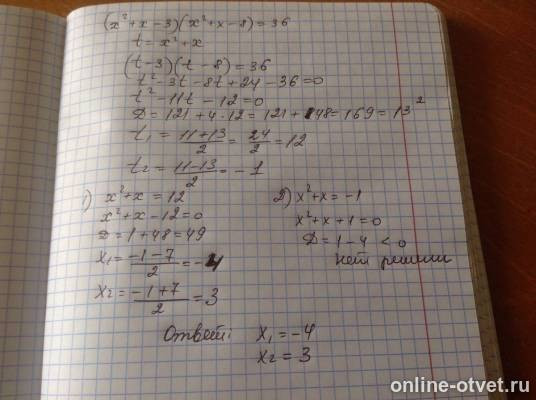 (x²+x-3)(x²+x-8)=36
t=x²+x
(t-3)(t-8)=36
t²-3t-8t+24-36=0
t²-11t-12=0
D=121+4·12=121+48=169=13²
t₁=(11+13)/2=24/2=12
t₂=(11-13)/2=-1
1) x²+x=12
x²+x-12=0
D=1+48=49
x₁=(-1-7)/2=-4
x₂=(-1+7)/2=3
2) x²+x=-1
x²+x+1=0
D=1-4<0
нет решений
Ответ: x₁=-4
x₂=3
online-otvet.ru